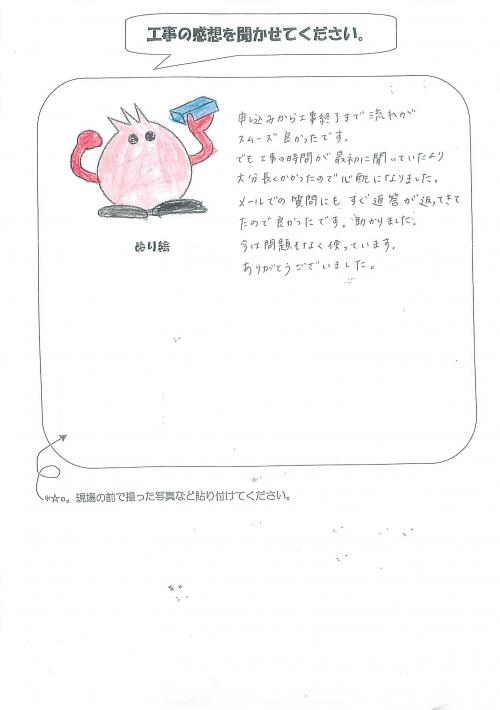 工事の感想を聞かせてください。
申し込みから工事終了まで流れが
スムーズ良かったです。
でも工事の時間が最初に聞いていたより
大分長くかかったので心配になりました。
メールでの質問にもすぐ返答が返ってきて
たので良かったです。助かりました。
今は問題もなく使っています。
ありがとうございました。
ぬり絵
*☆。現場の前で撮った写真など貼り付けてください。